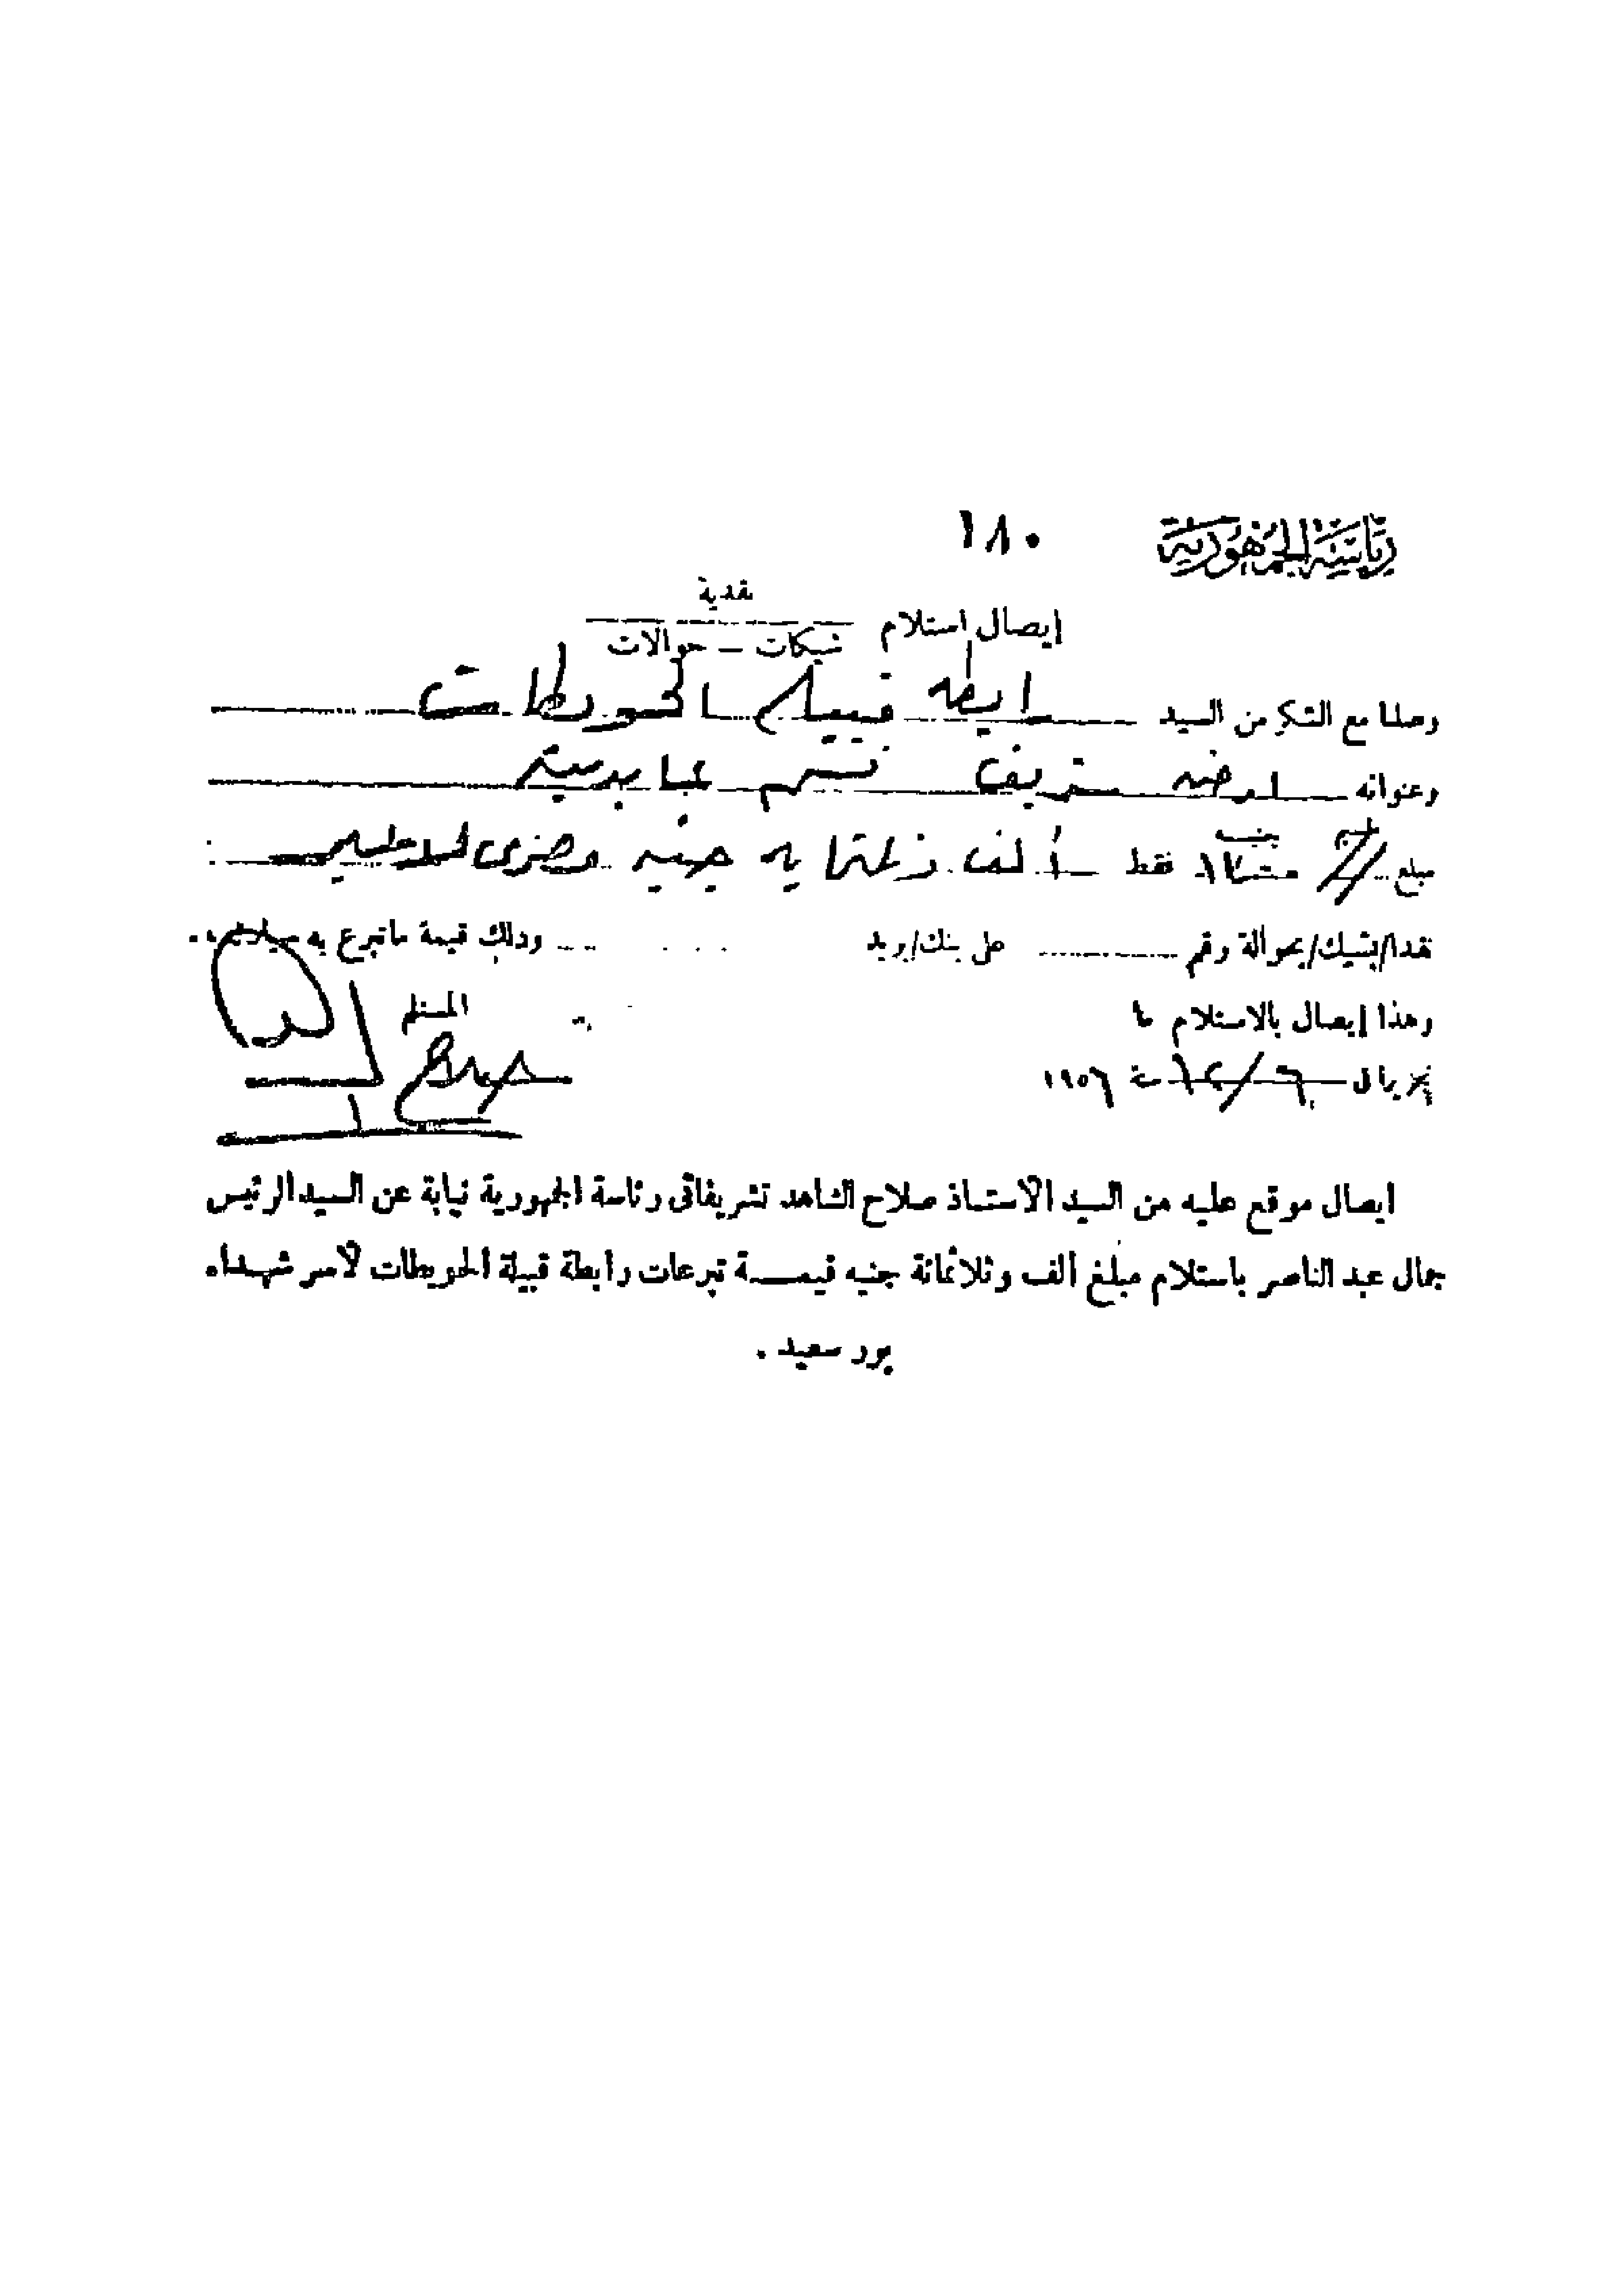 رياسة الجمهورية
١٨٠
إيصال استلام نقدية
شيكات - حوالات
وصلنا مع الشكر من السيد رابطة قبيلة الحويطات
وعنوانه شريف قسم عابدين
مبلغ فقط ألف وثلثمايه جنيه مصرى
نقدا/بشيك/بحوالة رقم على بنك/بريد وذلك قيمة ماتبرع به سيادته.
وهذا إيصال بالاستلام
المستلم
٦/١٢ سنة ١٩٥٦
ايصال موقع عليه من السيد الاستاذ صلاح الشاهد تشريفاتى رئاسة الجمهورية نيابة عن السيد الرئيس
جمال عبد الناصر باستلام مبلغ ألف وثلاثمائة جنيه قيمة تبرعات رابطة قبيلة الحويطات لأسر شهداء
بور سعيد .